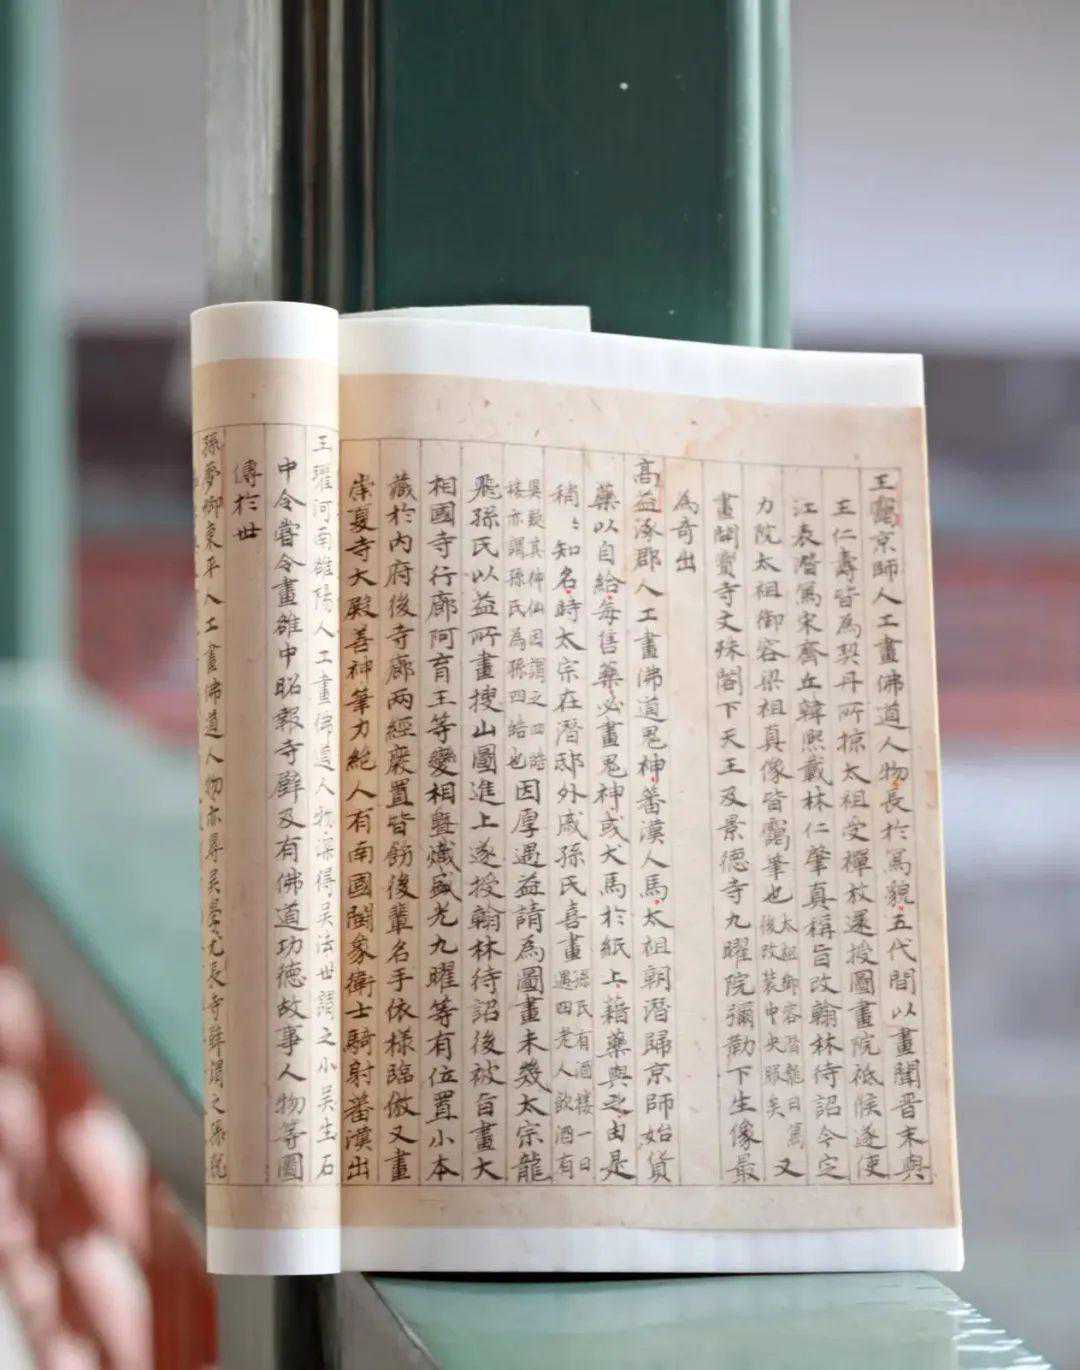 王靄京師人工畫佛道人物長於寫貌五代間以畫聞晉末與
王仁壽皆為契丹所掠太祖受禪放還授圖畫院祗候遂使
江表潛寫宋齊丘韓熙載林仁肇真稱旨改翰林待詔今定
力院太祖御容梁祖真像皆靄筆也太祖御容潛龍日寫後改裝中央服矣又
畫開寶寺文殊閣下天王及景德寺九曜院彌勒下生像最
為奇出
高益涿郡人工畫佛道鬼神蕃漢人馬太祖朝潛歸京師始貨
藥以自給每售藥必畫鬼神或犬馬於紙上藉藥與之由是
稍〻知名時太宗在潛邸外戚孫氏喜畫孫氏有酒樓一日遇四老人飲酒有
異疑其神仙因謂之四皓樓亦謂孫氏為孫四皓也因厚遇益請為圖畫未幾太宗龍
飛孫氏以益所畫搜山圖進上遂授翰林待詔後被旨畫大
相國寺行廊阿育王等變相暨熾盛光九曜等有位置小本
藏於內府後寺廊兩經廢置皆飭後輩名手依樣臨倣又畫
崇夏寺大殿善神筆力絕人有南國鬪象衛士騎射蕃漢出
王瓘河南雒陽人工畫佛道人物深得吳法世謂之小吳生石
中令嘗令畫雒中昭報寺壁及有佛道功德故事人物等圖
傳於世
孫夢卿東平人工畫佛道人物亦尋吳學尤長寺壁謂之孫脫